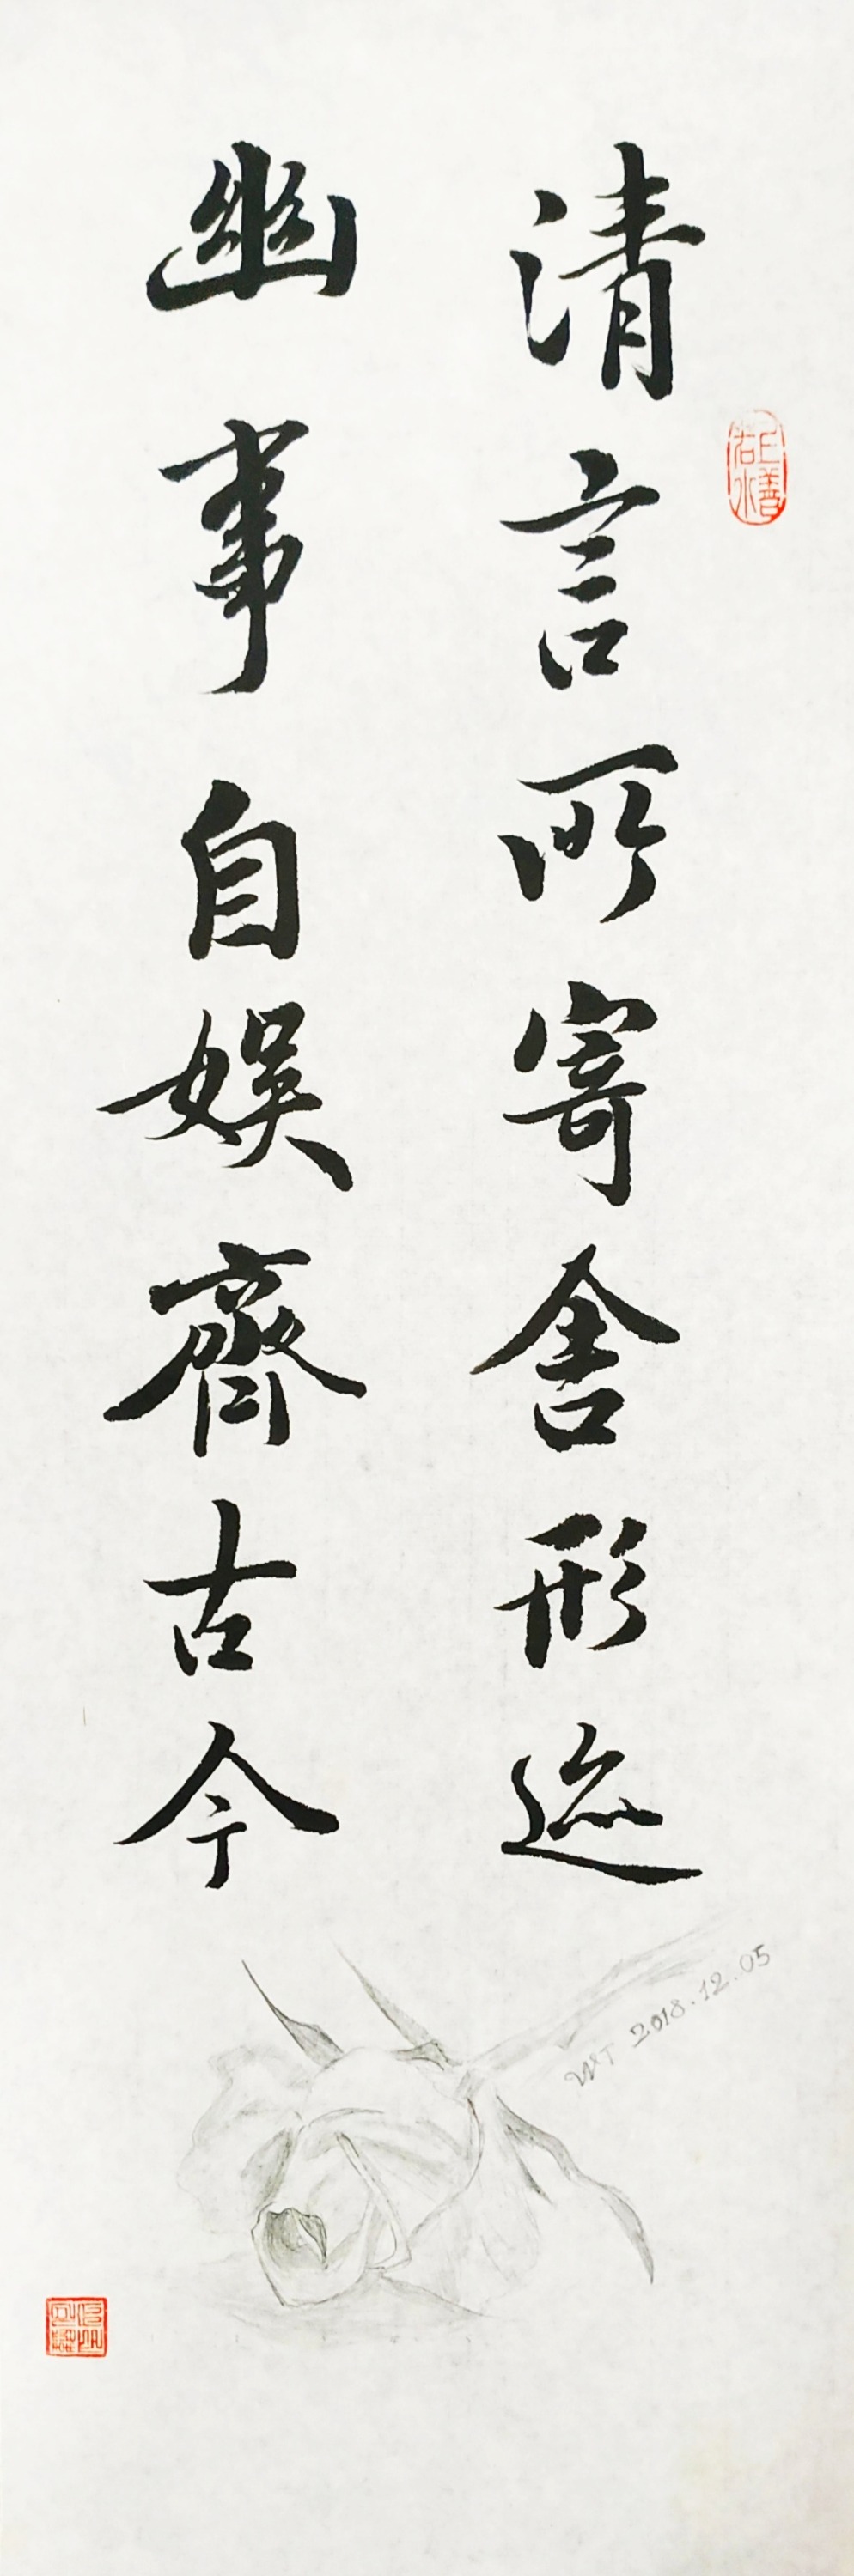 清言所寄舍形迹
幽事自娱齊古今
上善若水
WT 2018.12.05